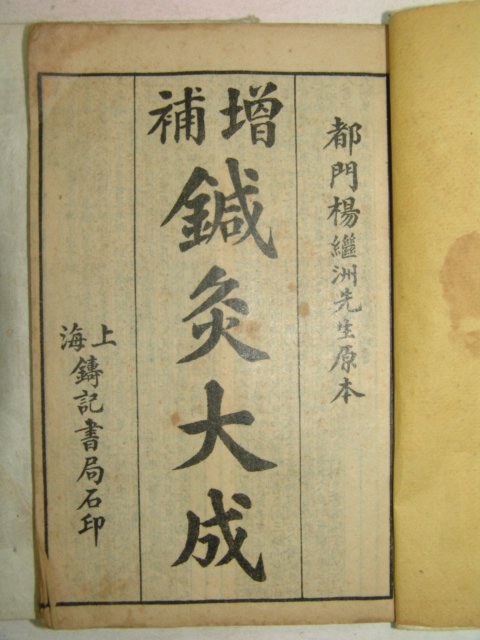 都門楊繼洲先生原本
增補
鍼灸大成
上海鑄記書局石印